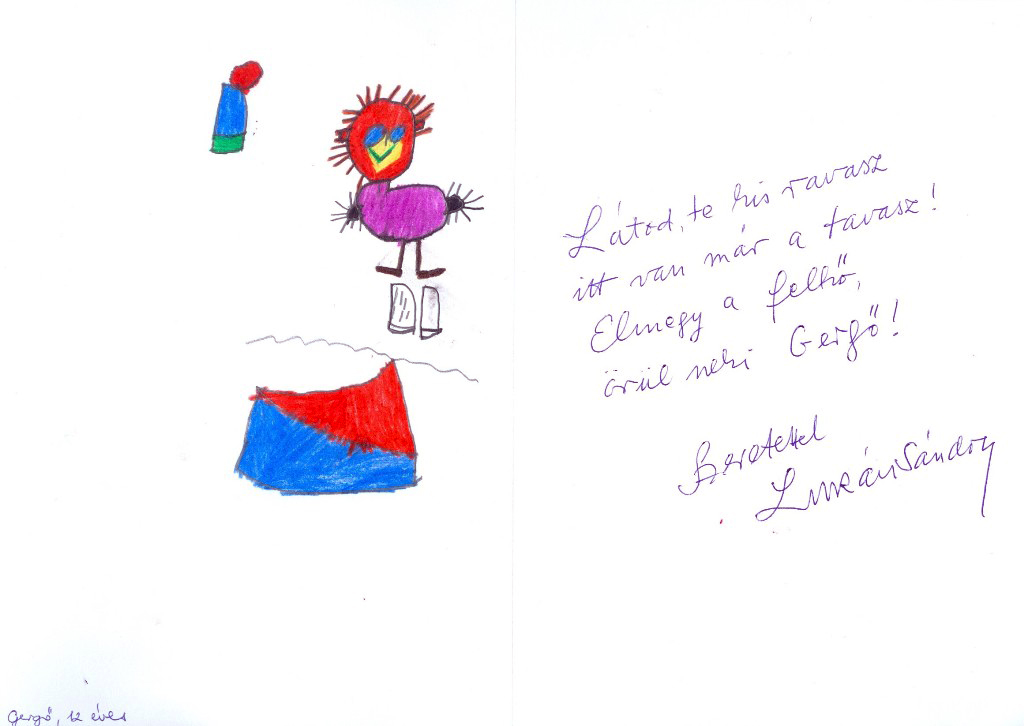 Látod, te kis ravasz
itt van már a tavasz!
Elmegy a felhő,
örül neki Gergő!
Szeretettel
Lukács Sándor
Gergő, 12 éves